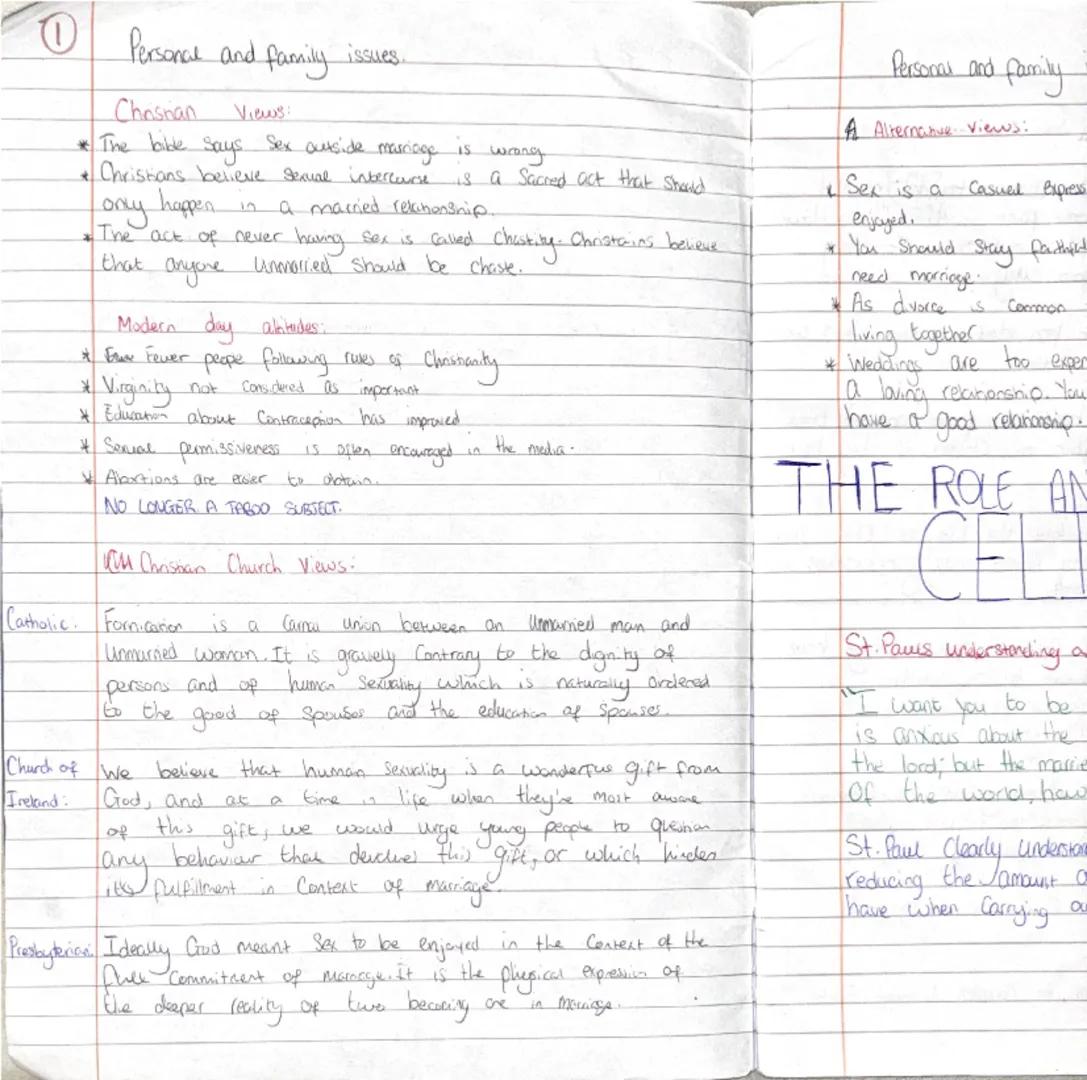 1
Personal and family issues.
Christian Views:
* The bible says sex outside marriage is wrong
* Christians believe sexual intercourse is a sacred act that should
only happen in a married relationship.
* The act of never having sex is called Chastity. Christains believe
that anyone unmarried should be chaste.
Modern day attitudes:
* Fewer people following rules of Christianity
* Virginity not considered as important
* Education about contraception has improved
* Sexual permissiveness is often encouraged in the media.
* Abortions are easier to obtain.
NO LONGER A TABOO SUBJECT.
Christian Church Views:
Catholic. Fornication is a carnal union between an unmarried man and
unmarried woman. It is gravely contrary to the dignity of
persons and of human sexuality which is naturally ordered
to the good of spouses and the education of spouses.
Church of We believe that human sexuality is a wonderful gift from
Ireland: God, and at a time in life when they're most aware
of this gift, we would urge young people to question
any behaviour that devalues this gift, or which hinders
its fulfillment in context of marriage.
Presbyterian: Ideally God meant sex to be enjoyed in the context of the
full commitment of marriage. It is the physical expression of
the deeper reality of two becoming one in marriage.
Personal and family
Alternative Views:
Sex is a casual express
enjoyed.
* You should stay faithful
need marriage.
* As divorce is common
living together
* Weddings are too expen
a loving relationship. You
have a good relationship.
THE ROLE AN
CELI
St. Pauls understanding a
"I want you to be
is anxious about the
the lord; but the marrie
of the world, how
St. Paul clearly understan
reducing the amount o
have when carrying ou